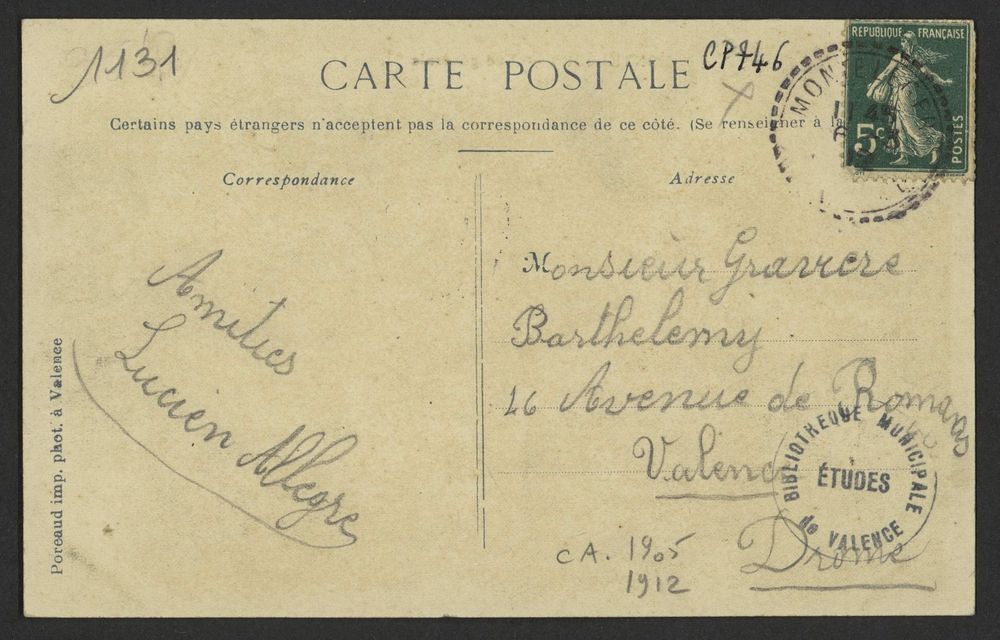 1131
CARTE POSTALE
CP746
Certains pays étrangers n'acceptent pas la correspondance de ce côté. (Se renseigner à la
RÉPUBLIQUE FRANÇAISE
5c
POSTES
Correspondance
Adresse
Amitiés
Lucien Allegre
Monsieur Gravière
Barthelemy
46 Avenue de Romans
Valence
Drome
BIBLIOTHEQUE MUNICIPALE
ÉTUDES
de VALENCE
CA. 1905
1912
Poreaud imp. phot. à Valence